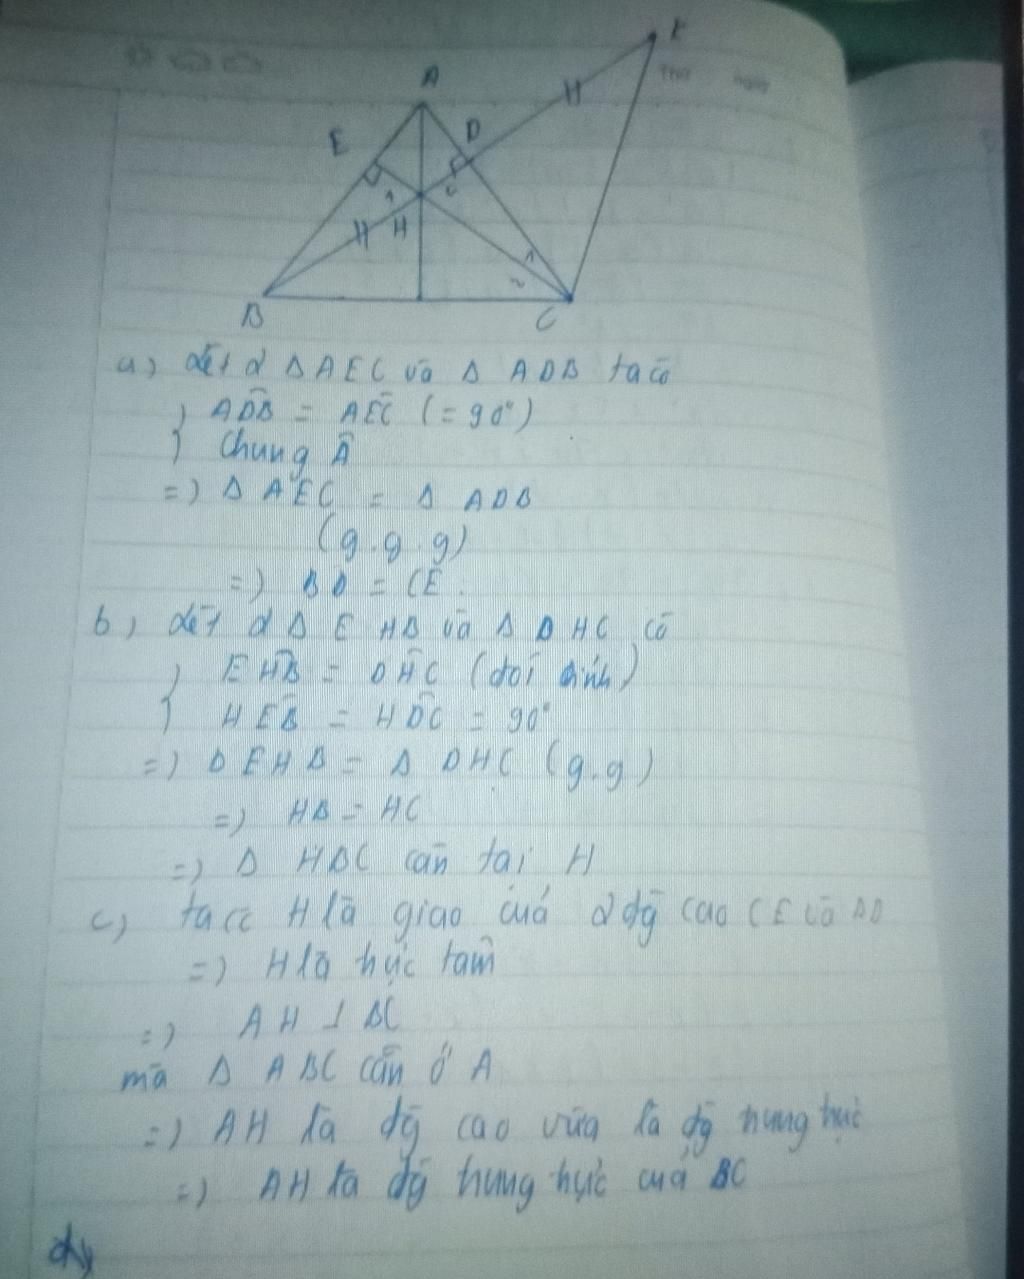 K
Thứ ngày
A
E D
1 2
H
1
2
B C
a) Xét 2 Δ AEC và Δ ADB ta có
ADB = AEC (= 90°)
Chung Â
=) Δ AEC = Δ ADB
(g.g.g)
=) BD = CE.
b) Xét 2 Δ EHB và Δ DHC có
EHB = DHC (đối đỉnh)
HEB = HDC = 90°
=) Δ EHB = Δ DHC (g.g)
=) HB = HC
=) Δ HBC cân tại H
c) ta có H là giao của 2 đg cao CE và
=) H là trực tâm
=) AH ⊥ BC
mà Δ ABC cân ở A
=) AH là đg cao vừa là đg trung trực
=) AH là đg trung trực của BC
d)